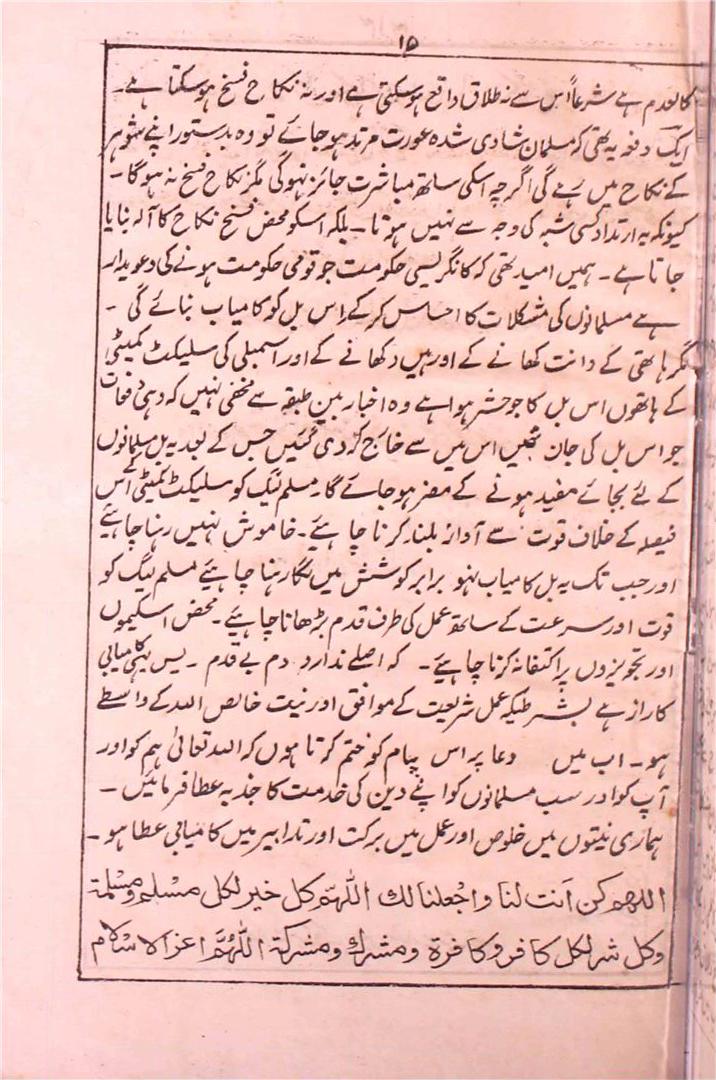 ۱۵
کالعدم ہے شرعاً اس سے نہ طلاق واقع ہوسکتی ہے اور نہ نکاح فسخ ہوسکتا ہے۔
ایک دفعہ یہ تھی کہ مسلمان شادی شدہ عورت مرتد ہوجائے تو وہ بدستور اپنے شوہر
کے نکاح میں رہے گی اگرچہ اسکی ساتھ مباشرت جائز نہوگی مگر نکاح فسخ نہ ہوگا۔
کیونکہ یہ ارتداد کسی شبہ کی وجہ سے نہیں ہوتا۔ بلکہ اسکو محض فسخ نکاح کا آلہ بنایا
جاتا ہے۔ ہمیں امید تھی کہ کانگریسی حکومت جو قومی حکومت ہونے کی دعویدار
ہے مسلمانوں کی مشکلات کا احساس کرکے اس بل کو کامیاب بنائے گی ۔
مگر ہاتھی کے دانت کھانے کے اور ہیں دکھانے کے اور اسمبلی کی سلیکٹ کمیٹی
کے ہاتھوں اس بل کا جو حشر ہوا ہے وہ اخبار بین طبقہ سے مخفی نہیں کہ وہی دفعات
جو اس بل کی جان تھیں اس میں سے خارج کردی گئیں جس کے بعد یہ بل مسلمانوں
کے لئے بجائے مفید ہونے کے مضر ہوجائے گا۔ مسلم لیگ کو سلیکٹ کمیٹی کے اس
فیصلہ کے خلاف قوت سے آواز بلند کرنا چاہیئے۔ خاموش نہیں رہنا چاہیئے
اور جب تک یہ بل کامیاب نہو برابر کوشش میں لگا رہنا چاہیئے مسلم لیگ کو
قوت اور سرعت کے ساتھ عمل کی طرف قدم بڑھانا چاہیئے۔ محض اسکیموں
اور تجویزوں پر اکتفا نہ کرنا چاہیئے۔ کہ اصلے ندارد دم بے قدم ۔ بس یہی کامیابی
کا راز ہے بشرطیکہ عمل شریعت کے موافق اور نیت خالص اللہ کے واسطے
ہو۔ اب میں دعا پر اس پیام کو ختم کرتا ہوں کہ اللہ تعالیٰ ہم کو اور
آپ کو اور سب مسلمانوں کو اپنے دین کی خدمت کا جذبہ عطا فرمائیں ۔
ہماری نیتوں میں خلوص اور عمل میں برکت اور تدابیر میں کامیابی عطا ہو ۔
اللهم كن أنت لنا واجعلنا لك اللّٰهمّ كل خير لكل مسلم ومسلمة
وكل شر لكل كافر وكافرة ومشرك ومشركة اللّٰهُمَّ اعز الاسلام